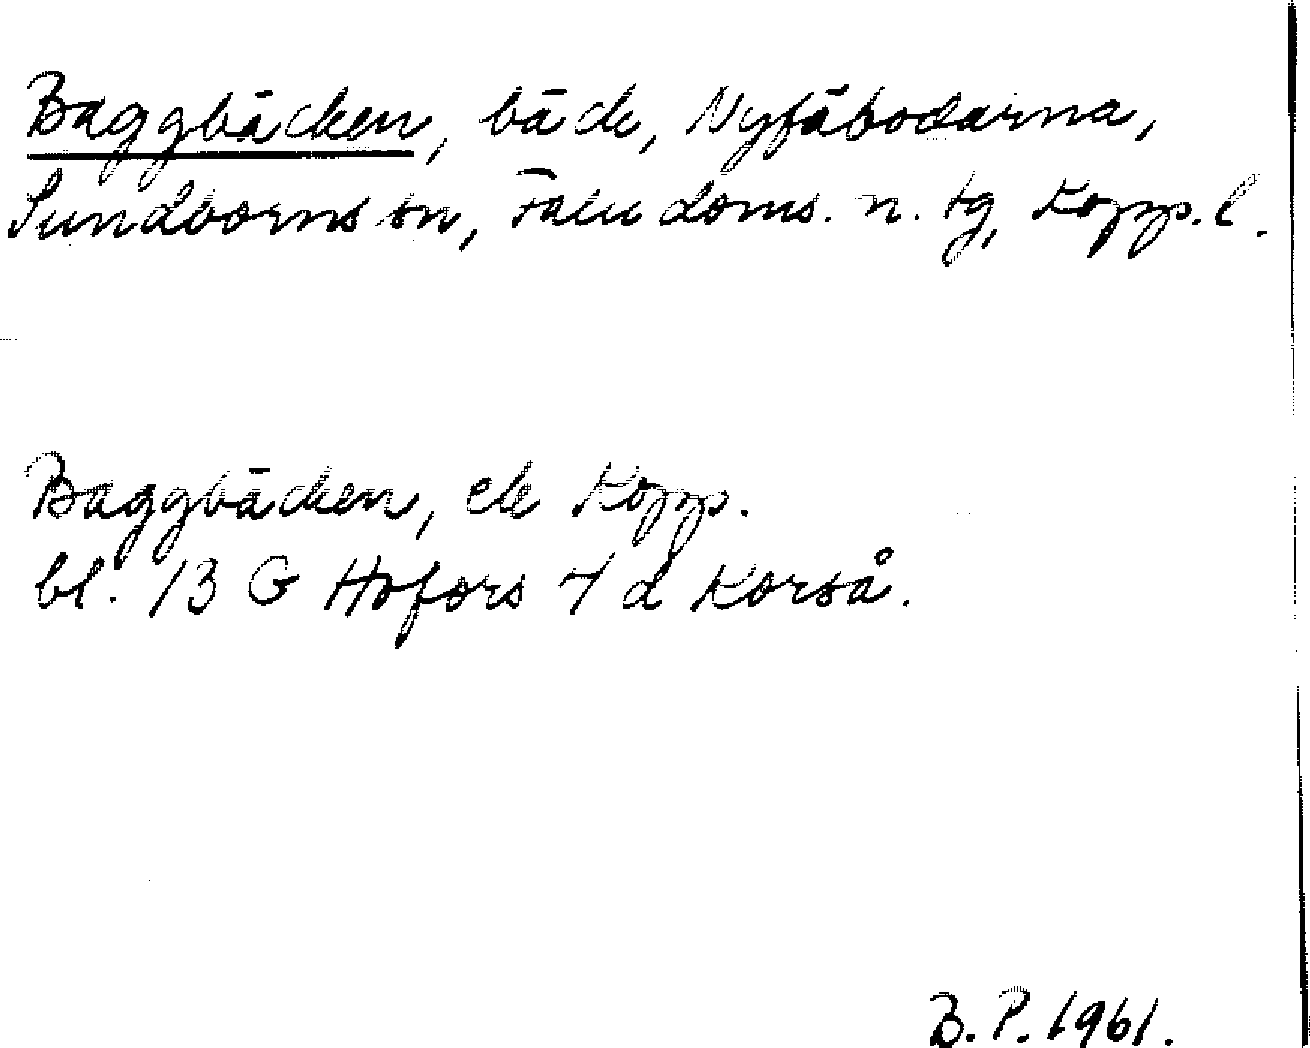 Baggbäcken, bäck, Nyfäbodarna,
Sundborns sn, Falu doms. n. tg, Kopp. l.
Baggbäcken, ek Kopp.
bl. 13 G Hofors 7 d Korså.
B. P. 1961.